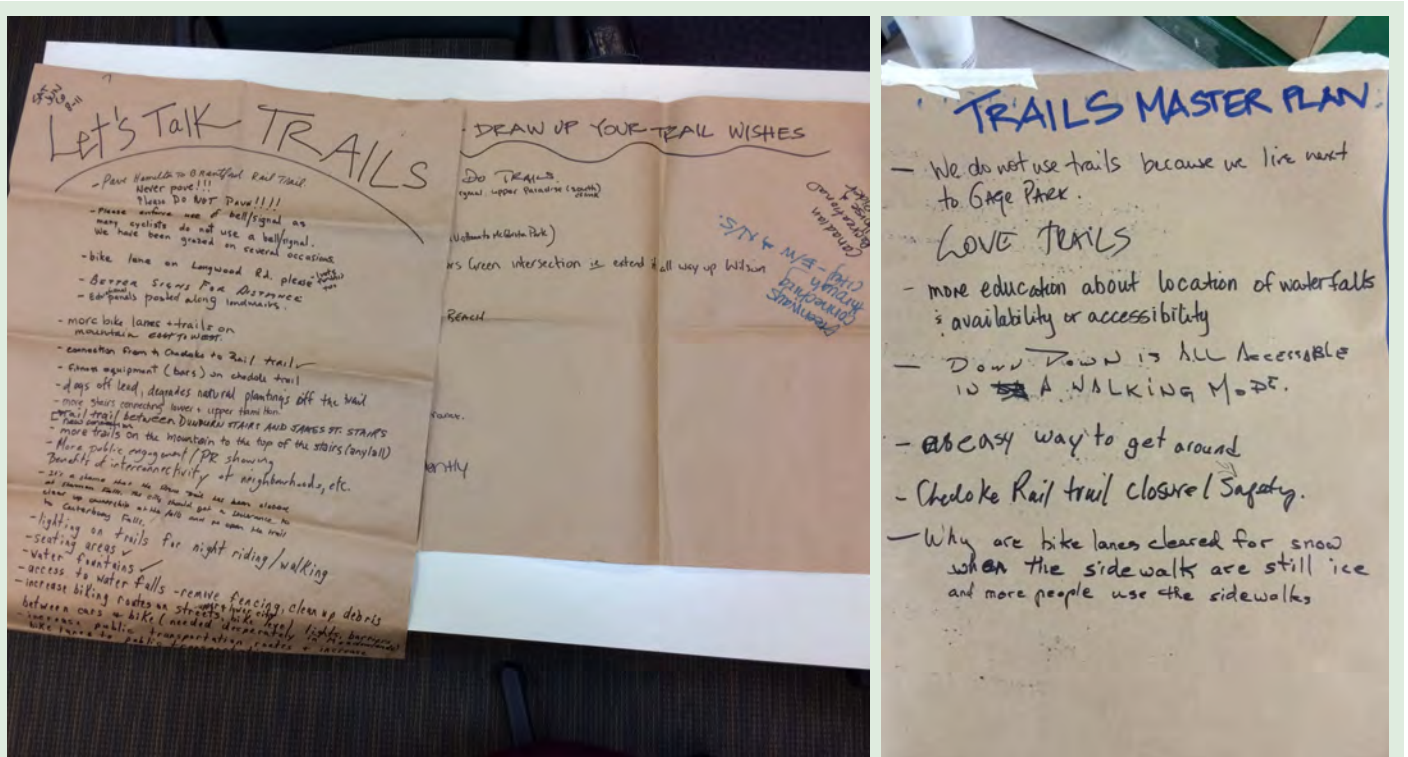 Let's Talk TRAILS
- Pave Hamilton to Brantford Rail Trail
Never pave!!!
Please DO NOT Pave!!!!
- Please enforce use of bell/signal as
many cyclists do not use a bell/signal.
We have been grazed on several occasions
- bike lane on Longwood Rd. please
- BETTER SIGNS FOR DISTANCE
panels posted along landmarks.
- more bike lanes + trails on
mountain EAST TO WEST.
- connection from Chedoke to Rail trail ✓
- fitness equipment (bars) on chedoke trail
- dogs off lead, degrades natural plantings off the trail
- more stairs connecting lower + upper Hamilton.
trail between DUNDURN STAIRS AND JAMES ST. STAIRS
- more trails on the mountain to the top of the stairs (any/all)
- More public engagement / PR showing
Benefits of interconnectivity of neighbourhoods, etc.
- It's a shame that the trail has been closed
at the city should get a
clear up ownership of the falls and re open the trail
to Canterbury Falls.
- lighting on trails for night riding/walking
- seating areas ✓
- water fountains ✓
- access to water falls - remove fencing, clean up debris
- increase biking routes on streets, bike lights, barriers,
between cars + bike (needed desperately in Meadowlands)
- increase public transportation routes + increase
DRAW UP YOUR TRAIL WISHES
DO TRAILS.
upper Paradise (south)
to McQuesten Park)
rs Green intersection is extend it all way up Wilson
BEACH
ently
Canadian
Greenways
connecting
through
city - E/W → N/S.
TRAILS MASTER PLAN
- We do not use trails because we live next
to GAGE PARK.
LOVE TRAILS
- more education about location of waterfalls
availability or accessibility
- DOWN DOWN IS ALL ACCESSABLE
IN A WALKING MODE.
- easy way to get around
- Chedoke Rail trail closure / Safety.
- Why are bike lanes cleared for snow
when the sidewalk are still ice
and more people use the sidewalks